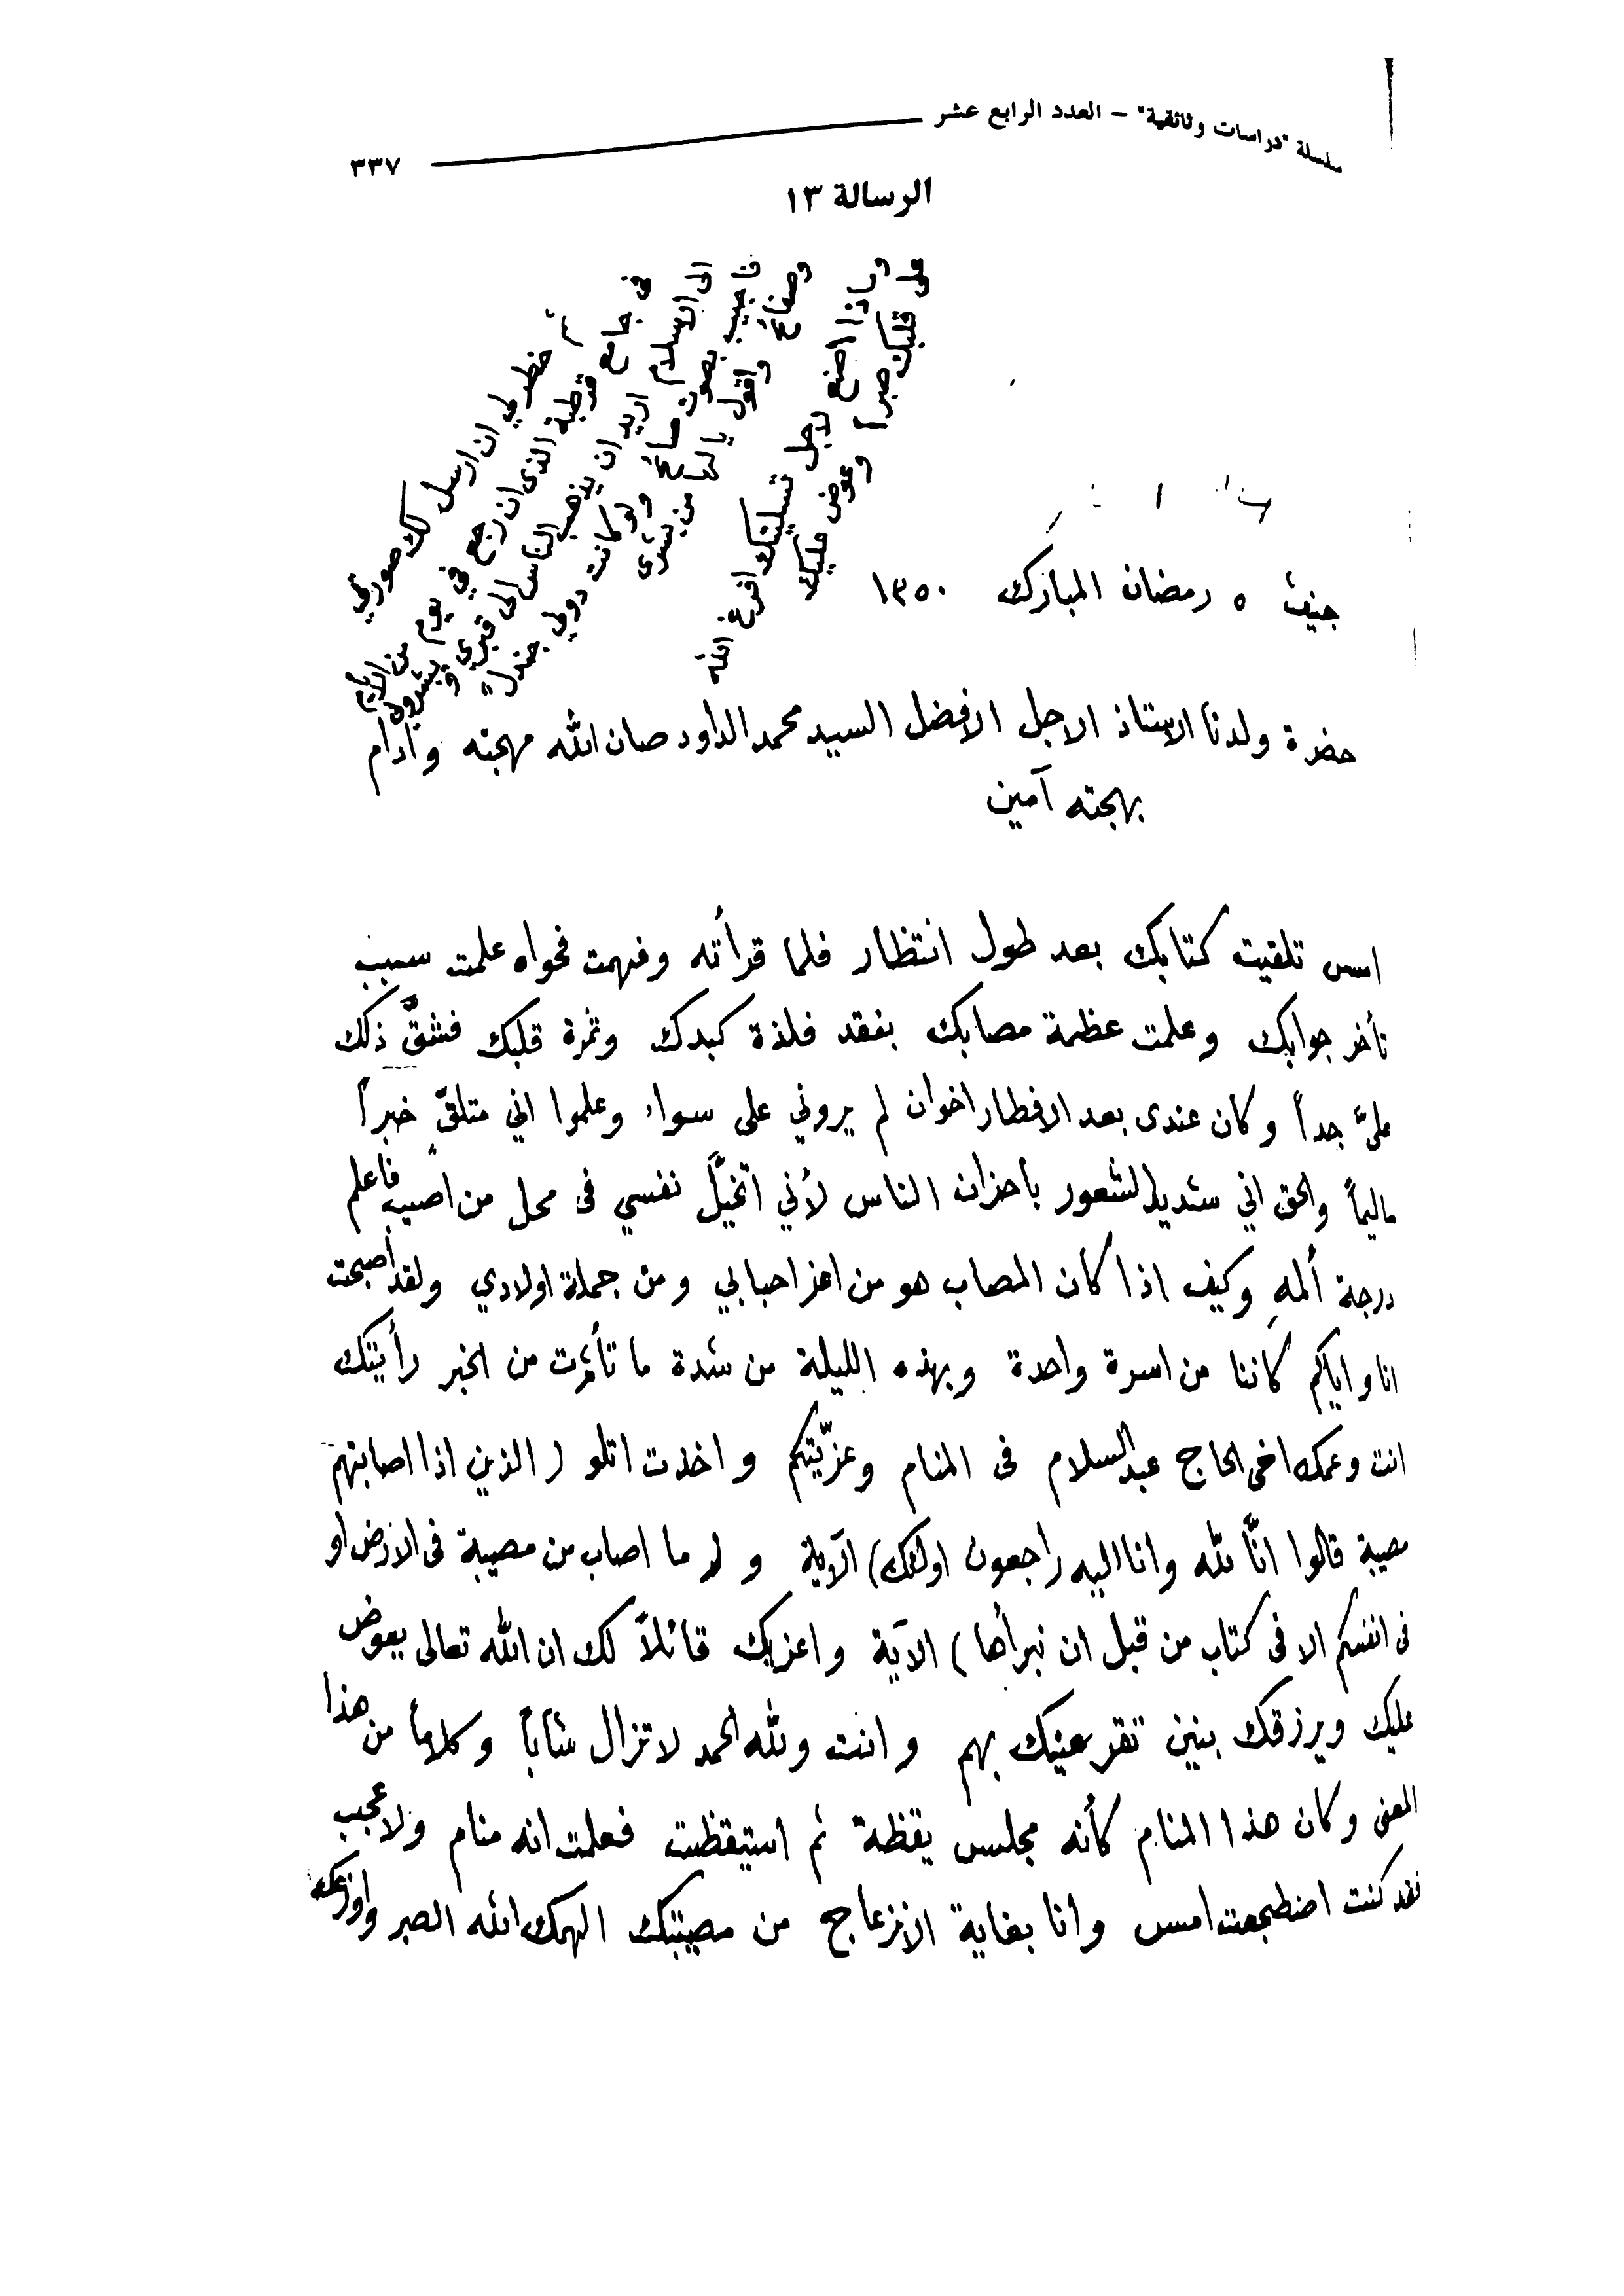 سلسلة "دراسات وثائقية" – العدد الرابع عشر
٣٣٧
الرسالة ١٣
ثم خطر لي ان ارسل لك صورتي
في جامع قرطبة الذى ان رجع في يوم من الايام
الى الاسلام اريد ان يذهب الناس الى قبري و يبشروني
فأجيب بصوت صائح ولو كانت دوني جندل
وصفائح واقول يا لها من بشرى
وماذا اصنع لاجل تسليتك افرغ الله
على قلبك صبراً وعوض عليك
جنيف ٥ رمضان المبارك ١٣٥٠
حضرة ولدنا الاستاذ الاجل الافضل السيد محمد الداود صان الله مهجته وأدام
بهجته آمين
امس تلقيت كتابك بعد طول انتظار فلما قرأته وفهمت فحواه علمت سبب
تأخر جوابك وعلمت عظمة مصابك بفقد فلذة كبدك وثمرة قلبك فشقّ ذلك
عليّ جداً وكان عندى بعد الافطار اخوان لم يروني على سواء وعلموا اني متلقّ خبراً
ماليماً والحق اني شديد الشعور بأحزان الناس لأني اتخيّل نفسي فى محل من اصيب فاعلم
درجة ألمهِ وكيف اذا كان المصاب هو من اعز احبابي ومن جملة اولادي ولقد أصبحت
انا واياكم كاننا من اسرة واحدة وبهذه الليلة من شدة ما تأثرت من الخبر رأيتك
انت وعمك اخى الحاج عبد السلام فى المنام وعزّيتكم واخذت اتلو ( الذين اذا اصابتهم
مصيبة قالوا انّا لله وانا اليه راجعون اولئك) الآية و ( ما اصاب من مصيبة فى الارض او
فى انفسكم الا فى كتاب من قبل ان نبرأها ) الآية واعزيك قائلاً لك ان الله تعالى يعوض
عليك ويرزقك بنين تقر عينك بهم وانت ولله الحمد لا تزال شاباً وكلاماً من هذا
المعنى وكان هذا المنام كأنه مجلس يقظة ثم استيقظت فعلمت انه منام ولا عجب
فقد كنت اضطجعت امس وانا بغاية الانزعاج من مصيبتك الهمك الله الصبر